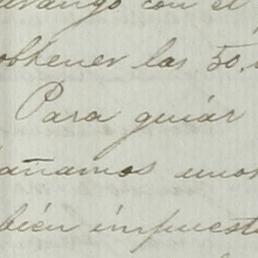 urango con el
obtener las 50.
Para guiar
añamos unos
bién impuesto